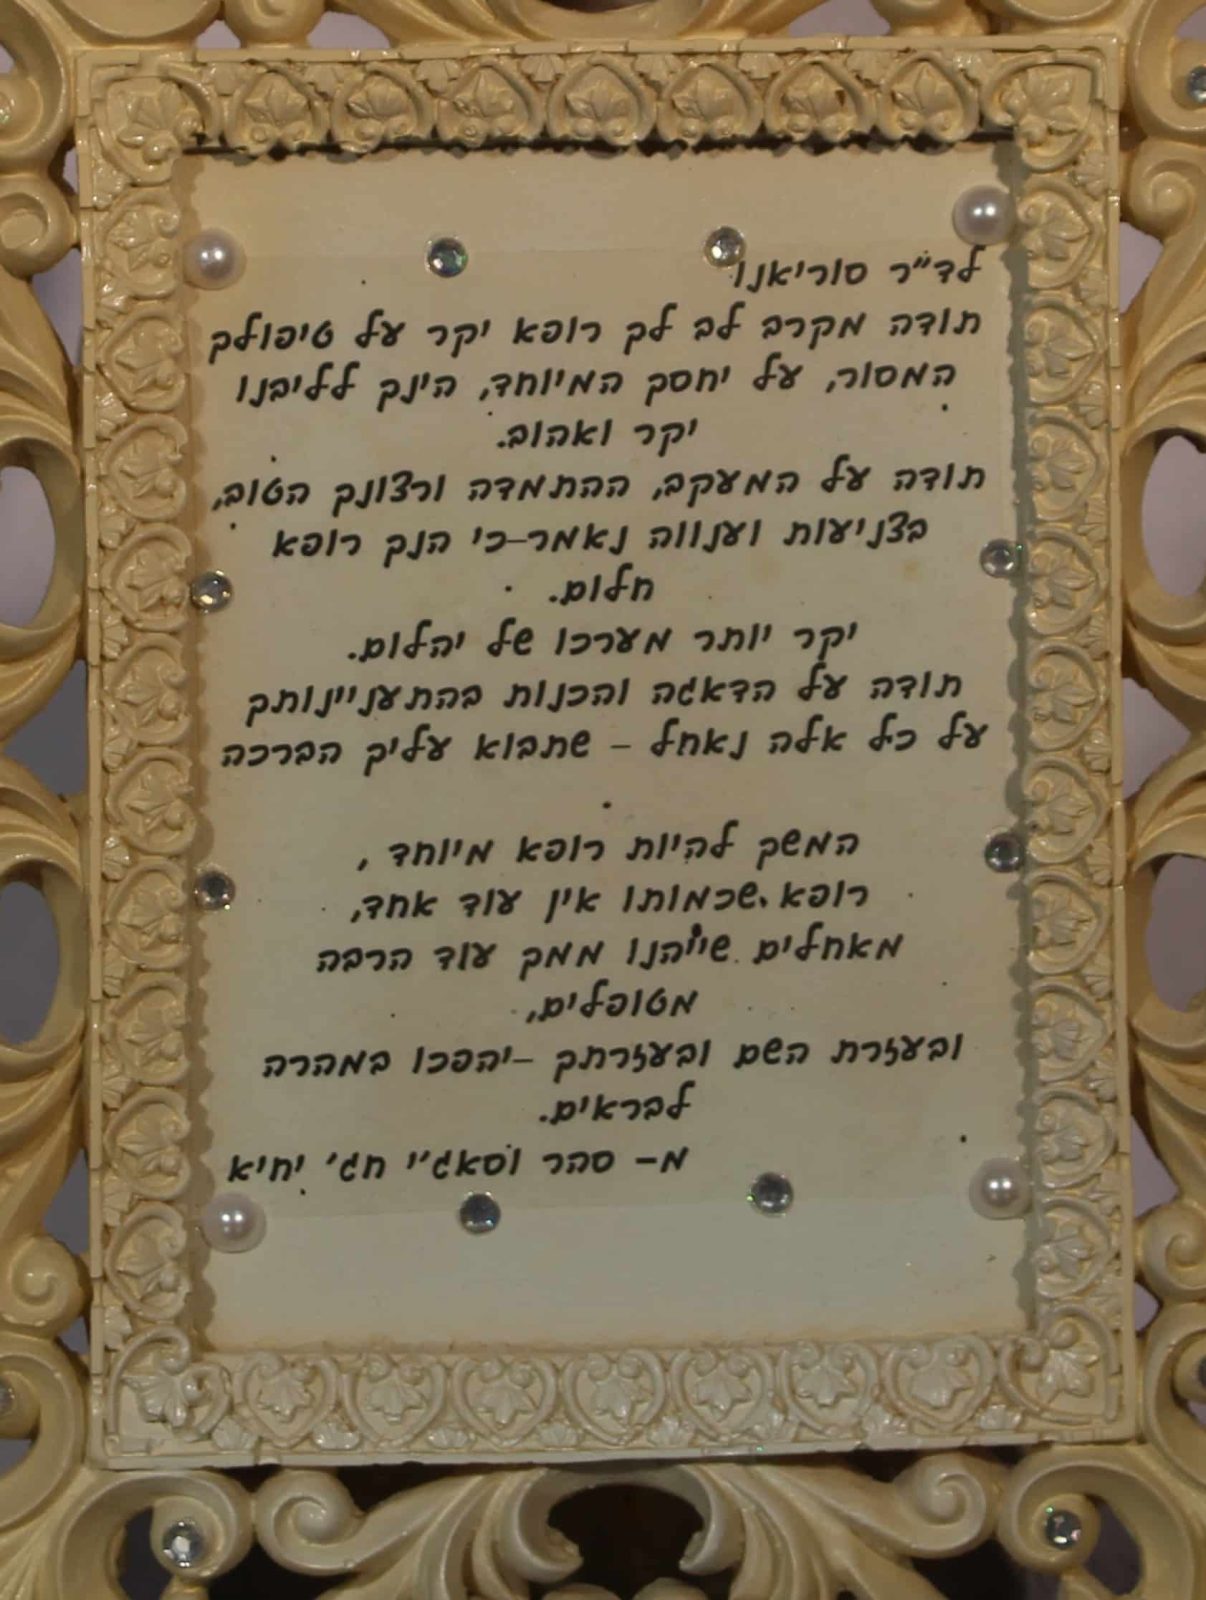 לד"ר סוריאנו
תודה מקרב לב לך רופא יקר על טיפולך
המסור, על יחסך המיוחד, הינך לליבנו
יקר ואהוב.
תודה על המעקב, ההתמדה ורצונך הטוב,
בצניעות וענווה נאמר-כי הנך רופא
חלום.
יקר יותר מערכו של יהלום.
תודה על הדאגה והכנות בהתעניינותך
על כל אלה נאחל - שתבוא עליך הברכה
המשך להיות רופא מיוחד ,
רופא שכמותו אין עוד אחד,
מאחלים שייהנו ממך עוד הרבה
מטופלים,
ובעזרת השם ובעזרתך -יהפכו במהרה
לבראים.
מ- סהר וסאג'י חג' יחיא